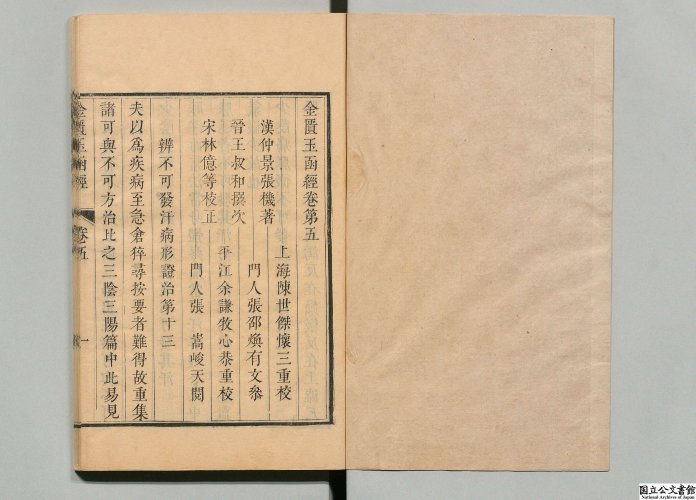 金匱玉函經卷第五
漢仲景張機著
上海陳世傑懷三重校
晉王叔和撰次
門人張邵煥有文叅
宋林億等校正
平江余謙牧心恭重校
門人張 嵩峻天閱
辨不可發汗病形證治第十三
夫以為疾病至急倉猝尋按要者難得故重集
諸可與不可方治比之三陰三陽篇中此易見
金匱玉函經 卷五 一
国立公文書館
National Archives of Japan